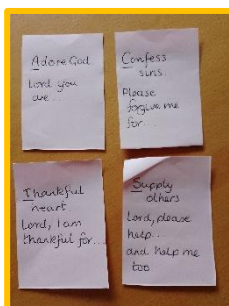 Adore God
Lord you
are...
Confess
sins.
Please
forgive me
for...
Thankful
heart
Lord, I am
thankful for...
Supply
others
Lord, please
help..
and help me
too